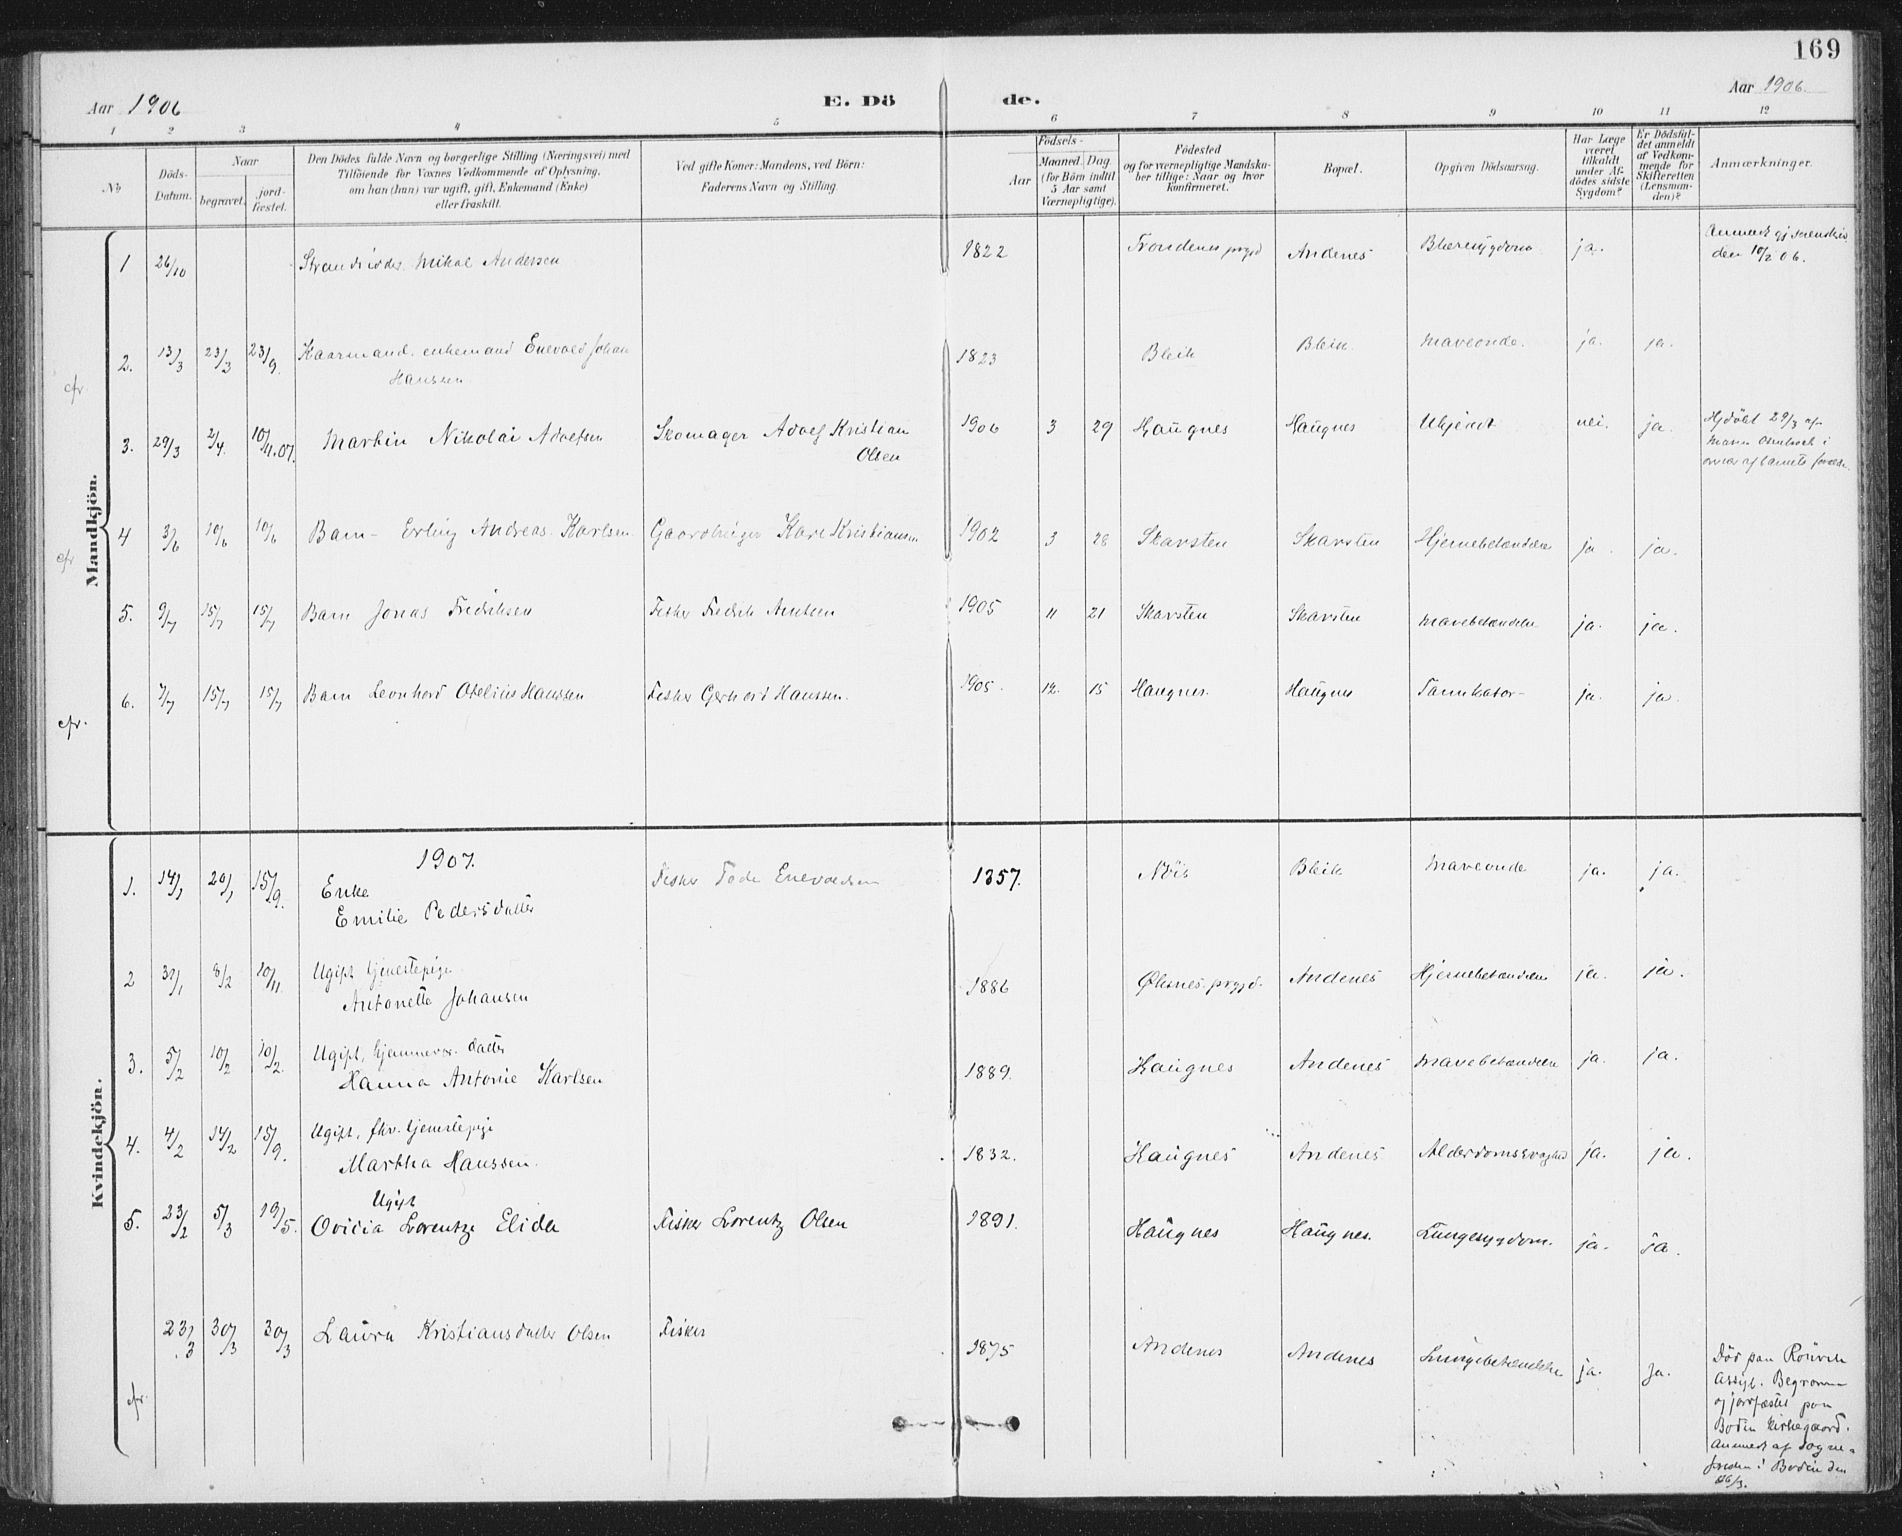 169
Aar 1906
E. Dö de.
Aar 1906.
1 2 3 4 5 6 7 8 9 10 11 12
No
Döds-Datum.
Naar
begravet.
jord-fæstet.
Den Dödes fulde Navn og borgerlige Stilling (Næringsvei) med
Tilföiende for Voxnes Vedkommende af Oplysning,
om han (hun) var ugift, gift, Enkemand (Enke)
eller fraskilt.
Ved gifte Koner: Mandens, ved Börn:
Faderens Navn og Stilling.
Födsels-
Aar
Maaned. Dag
(for Börn indtil
5 Aar samt
Værnepligtige).
Födested
og for værnepligtige Mandska-
ber tillige: Naar og hvor
konfirmeret.
Bopæl.
Opgiven Dödsaarsag.
Har Læge
været
tilkaldt
under Af-
dödes sidste
Sygdom?
Er Dödsfal-
det anmeldt
af Vedkom-
mende for
Skifteretten
(Lensman-
den)?
Anmærkninger.
Mandkjön.
1 26/10 Mikal Andersen 1822 Trondenes prgjd Andenes Blæresygdom ja.
den 10/2 06.
2. 13/3 23/3 23/9. Kaarmand. enkemand Enevold Johan 1823 Bleik Bleik. Maveonde. ja. ja.
Hanssen
cfr.
3. 29/3 2/4. 10/4.07. Martin Nikolai Adolfsen Skomager Adolf Kristian 1906 3 29 Haugnes Haugnes Ukjendt nei. ja. Hjdöbt 29/3 af
Olsen
cfr 4 3/6 10/6 10/6 Barn- Erling Andreas Karlsen Gaardbruger Karl Kristiansen 1902 3 28 Skarsten Skarsten Hjernebetændelse ja. ja.
5. 9/7 15/7 15/7 Barn Jonas Fredriksen Fisker Fredrik Amtsen 1905 11 21 Skarsten Skarsten Mavebetændelse ja. ja.
6. 7/7 15/7 15/7 Barn Leonhard Otelius Hanssen Fisker Gerhard Hanssen. 1905. 12. 15 Haugnes. Haugnes ja. ja.
cfr.
Kvindekjön.
1907.
1. 14/1 20/1 15/9. Enke Fisker Tode Enevoldsen 1857. Bleik Maveonde ja. ja.
Emilie Pedersdatter
2 31/1 8/2 10/11. Ugift tjenestepige 1886 Øksnes prgjd. Andenes Hjernebetændelse ja. ja.
Antonette Johansen
3. 5/2 10/2 10/2. Ugift, hjemmevær. datter 1889. Haugnes Andenes Mavebetændelse ja. ja.
Hanna Antonie Karlsen
4. 4/2 14/2 15/9. Ugift, fhv. tjenestepige 1832. Haugnes Andenes Alderdomssvaghed ja. ja.
Martha Hanssen.
Ugift
5. 23/2 5/3 19/5. Ovidia Lorentze Elida Fisker Lorentz Olsen 1891. Haugnes Haugnes. Lungesygdom. ja. ja.
23/3 30/3 30/3 Laura Kristiansdatter Olsen Fisker 1875 Andenes Andenes Lungebetændelse ja. Ja. Död paa Rönvik
cfr.
Asyl. Begraven
og jordfæstet paa
Bodin Kirkegaard.
Anmeldt af Sogne-
presten i Bodin den
26/3.